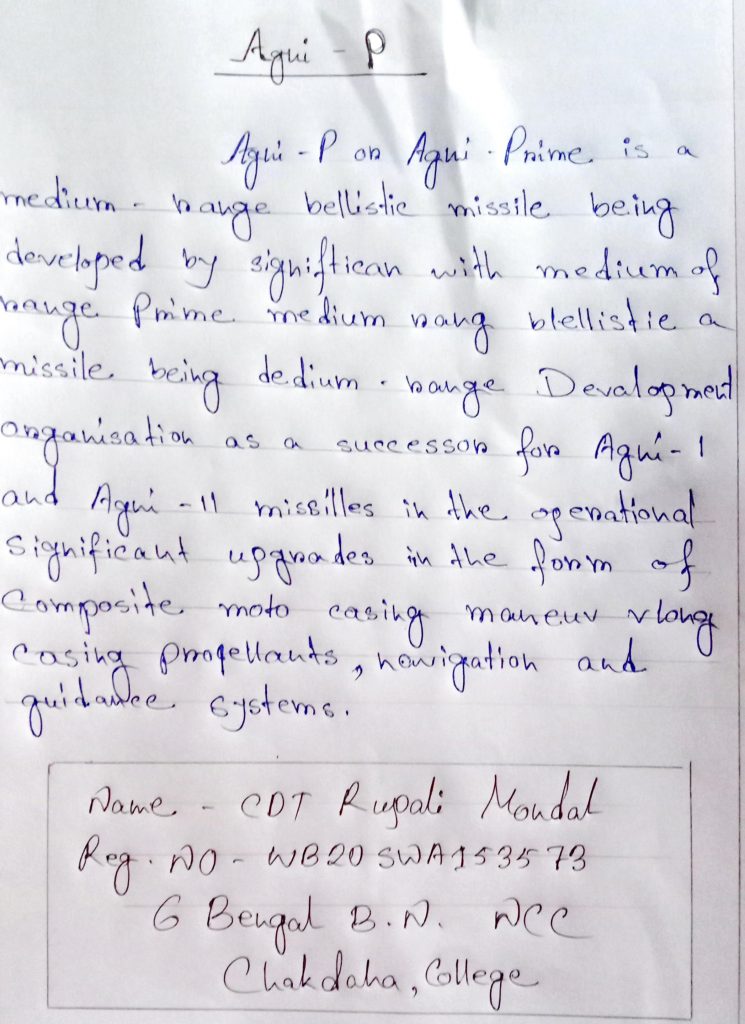 Agni - P
Agni - P or Agni - Prime is a
medium - range bellistic missile being
developed by signiftican with medium of
range Prime medium rang blellistie a
missile being dedium - range Devalopment
organisation as a successor for Agni - 1
and Agni - 11 missilles in the operational
significant upgrades in the form of
Composite moto casing maneuv vlong
casing propellants, nowigation and
guidance systems.
Name - CDT Rupali Mondal
Reg. NO - WB20SWA153573
6 Bengal B.N. NCC
Chakdaha, College